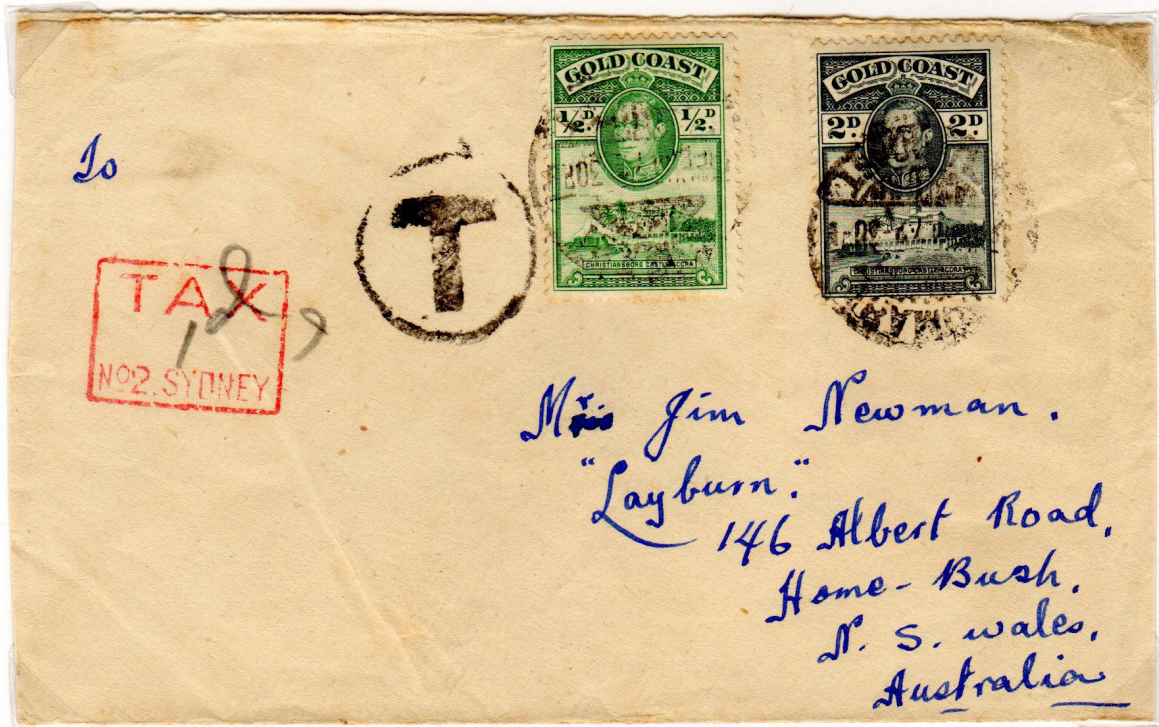 GOLD COAST
½D. ½D.
CHRISTIANSBORG CASTLE, ACCRA
GOLD COAST
2D. 2D.
CHRISTIANSBORG CASTLE, ACCRA
To
T
30P
TAX
1d
No2. SYDNEY
Mr Jim Newman.
"Layburn."
146 Albert Road,
Home-Bush,
N. S. wales,
Australia